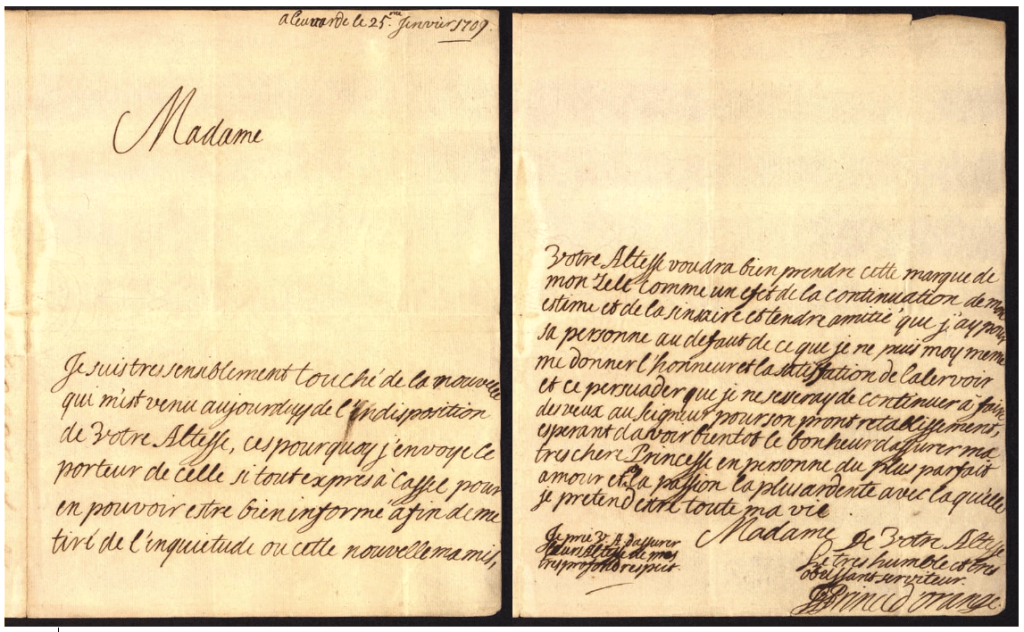 a Leuuarde le 25.me Jenvier 1709.
Madame
Je suis tres sensiblement touché de la nouvelle
qui m'est venu aujourdhuy de l'indisposition
de Votre Altesse, ces pourquoy j'envoye ce
porteur de celle si tout expres à Cassel pour
en pouvoir estre bien informé afin de me
tiré de l'inquietude ou cette nouvelle ma mis,
Votre Altesse voudra bien prendre cette marque de
mon Zele comme un efet de la continuation de mon
estime et de la sincaire et tendre amitié que j'ay pour
sa personne au defaut de ce que je ne puis moy meme
me donner l'honneur et la satisfation de laler voir
et ce persuader que je ne seseray de continuer à faire
des veux au seigneur pour son pront retablissement,
esperant davoir bientot le bonheur dassurer ma
tres chere Princesse en personne du plus parfait
amour et la passion la plus ardente avec laquelle
je pretend être toute ma vie
Madame
de Votre Altesse
Le tres humble et tres
obeissant serviteur.
Prince d'orange.
Je prie V. A. dassurer
de mes
tres profond respect.